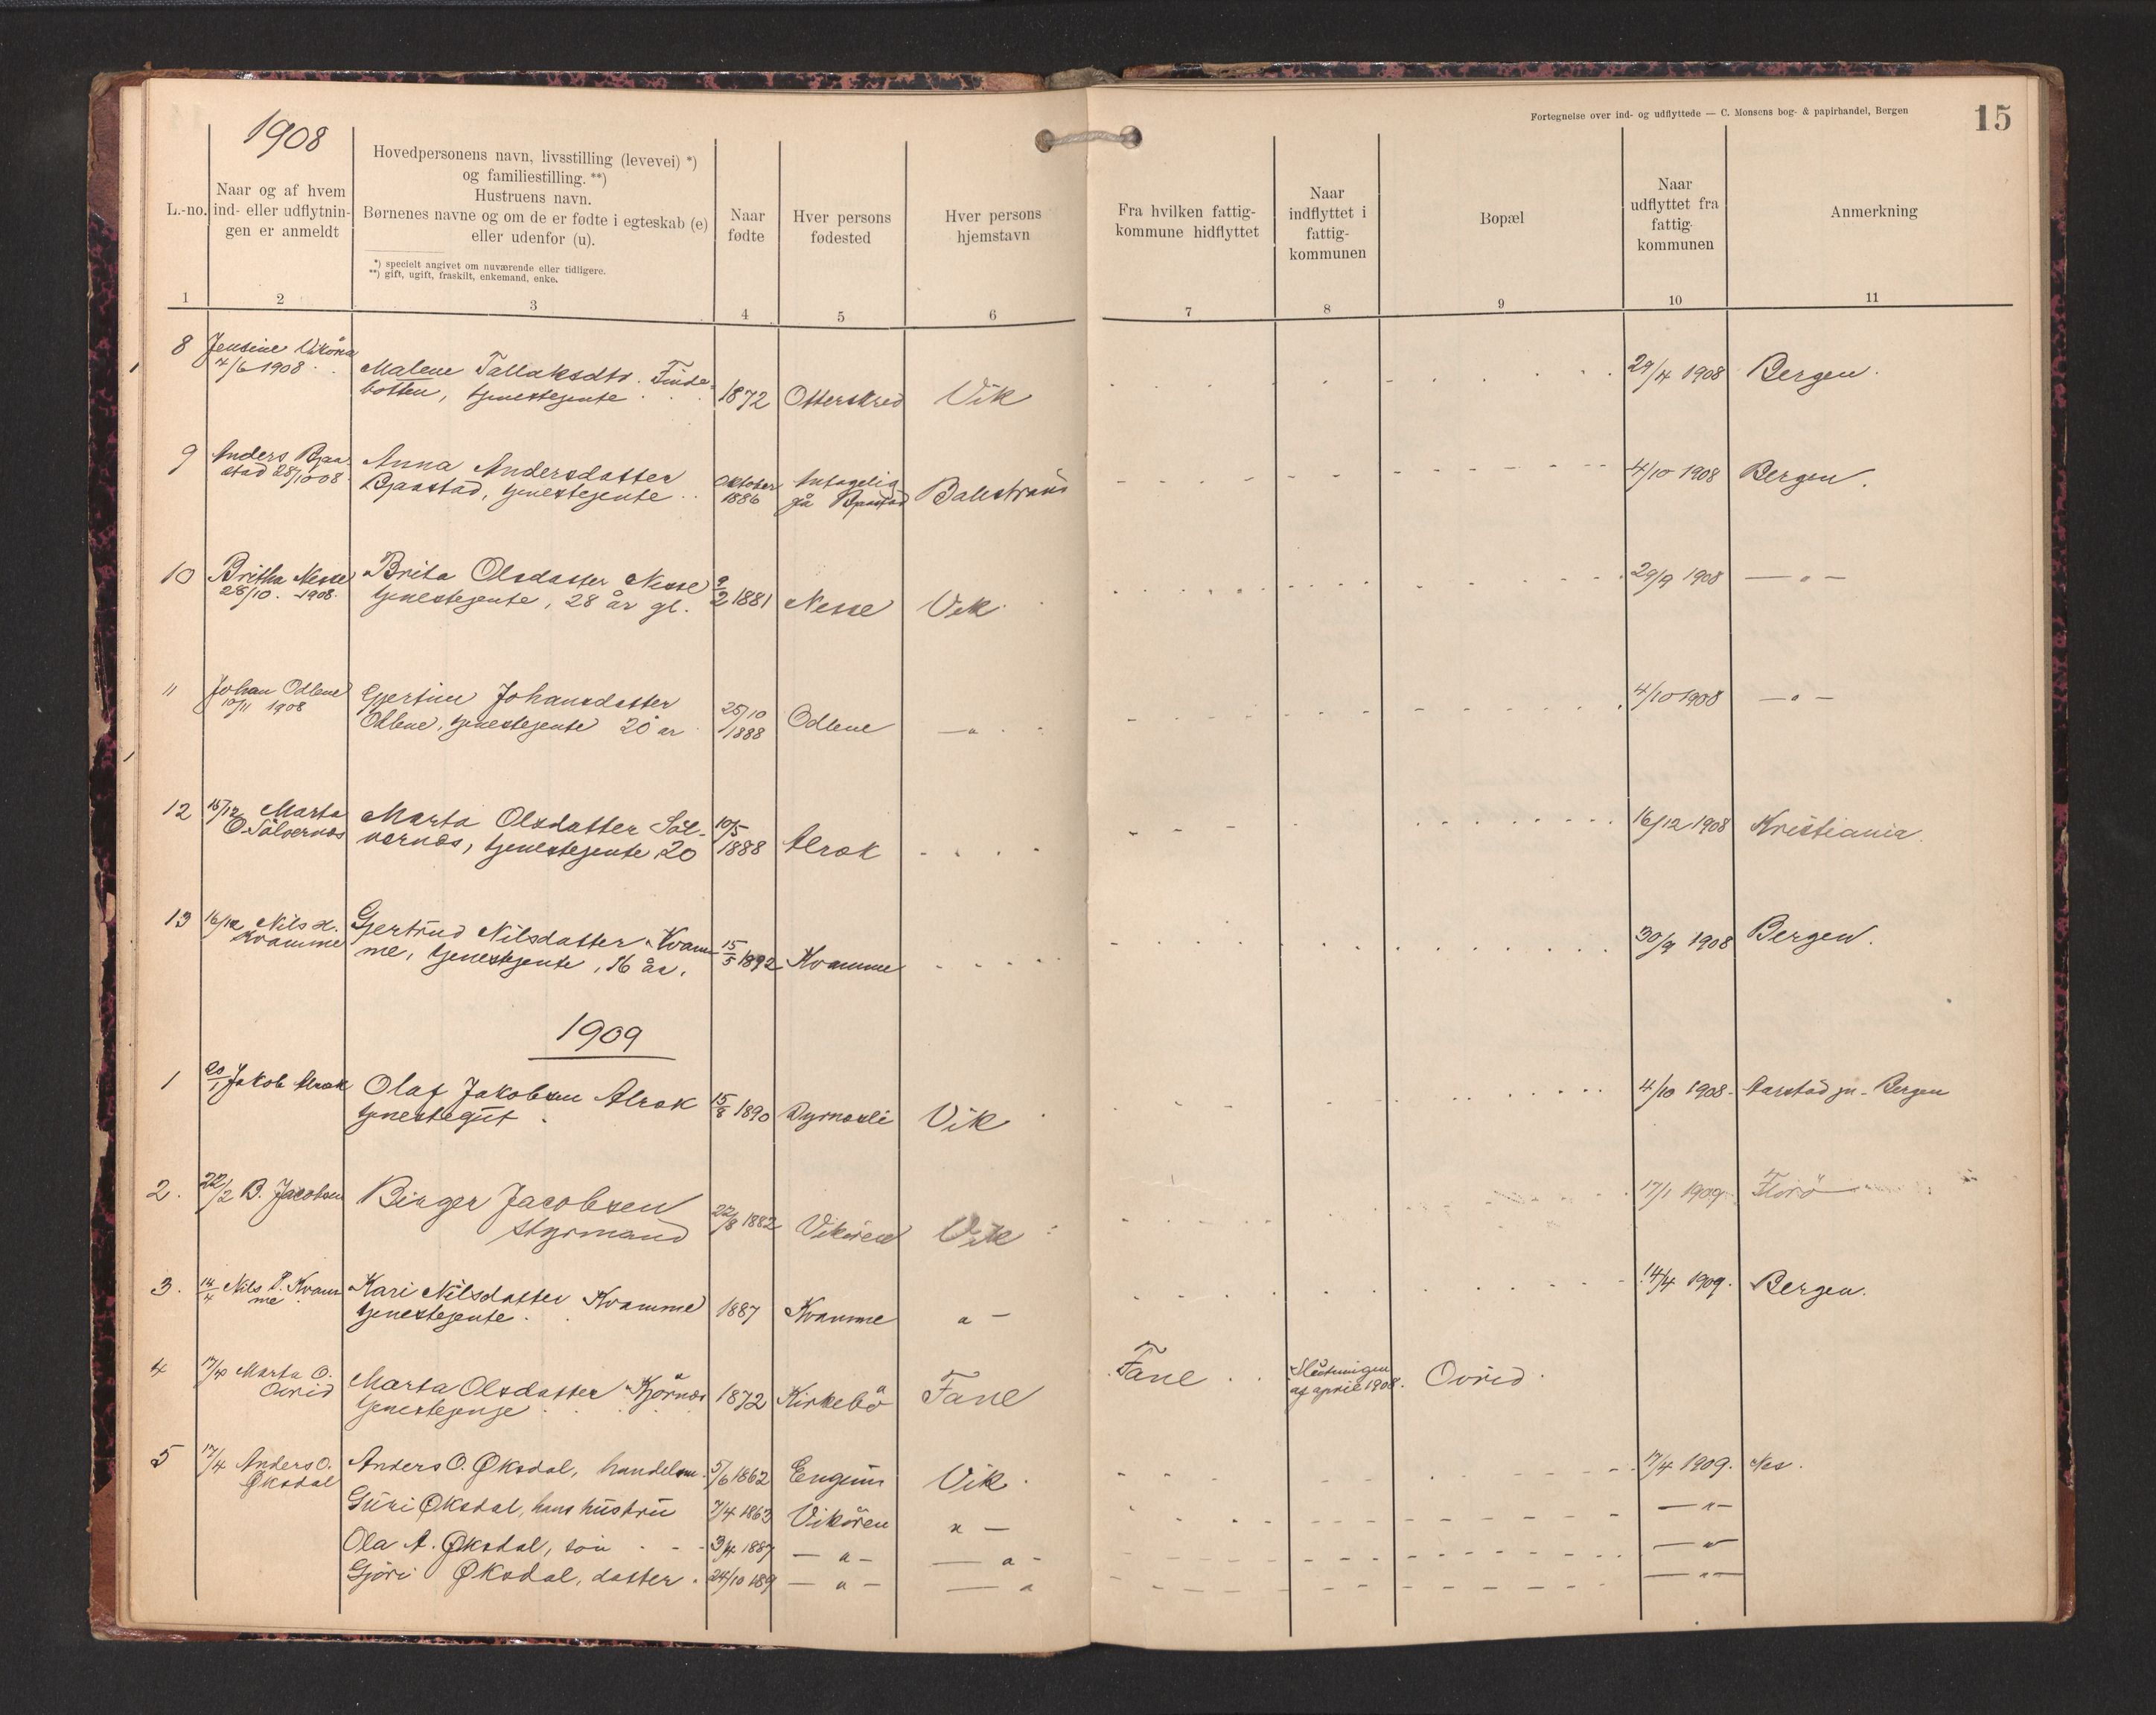 1908
Fortegnelse over ind- og udflyttede — C. Monsens bog- & papirhandel, Bergen
15
L.-no.
Naar og af hvem
ind- eller udflytnin-
gen er anmeldt
Hovedpersonens navn, livsstilling (levevei) *)
og familiestilling. **)
Hustruens navn.
Børnenes navne og om de er fødte i egteskab (e)
eller udenfor (u).
*) specielt angivet om nuværende eller tidligere.
**) gift, ugift, fraskilt, enkemand, enke.
Naar
fødte
Hver persons
fødested
Hver persons
hjemstavn
Fra hvilken fattig-
kommune hidflyttet
Naar
indflyttet i
fattig-
kommunen
Bopæl
Naar
udflyttet fra
fattig-
kommunen
Anmerkning
1 2 3 4 5 6 7 8 9 10 11
8 Jensine Vikören
4/6 1908
Malene Tallaksdtr. Finde-
botten, tjenestejente 1872 Otterskred Vik 29/4 1908 Bergen.
9 Anders Bjaa-
stad 28/10 08
Anna Andersdatter
Bjaastad, tjenestejente
oktober
1886
Antagelig
på Bjaastad
Balestrand 4/10 1908 Bergen.
10 Britha Nesse
28/10 1908.
Brita Olsdatter Nesse
tjenestejente, 28 år gl. 9/2 1881 Nesse Vik 29/9 1908 — " —
11 Johan Odlene
10/11 1908
Gjertine Johansdatter
Odlene, tjenestejente 20 år
25/10
1888
Odlene — " 4/10 1908 — " —
12 15/12 Marta
O. Sälvernæs
Marta Olsdatter Säl-
vernæs, tjenestejente, 20
10/5
1888
Alrek 16/12 1908 Kristiania.
13 16/12 Nils
Kvamme
Gjertrud Nilsdatter Kvam-
me, tjenestejente, 16 år. 15/5 1892 Kvamme 30/9 1908 Bergen.
1909
1 20/1 Jakob Alrek Olaf Jakobsen Alrek
tjenestegut 15/8 1890 Dyrnesli Vik 4/10 1908. Aarstad pr. Bergen
2. 22/2 B. Jacobsen Birger Jacobsen
Styrmand 22/8 1882 Vikören Vik 17/1 1909 Florö
3. 14/4 Nils P. Kvam-
me
Kari Nilsdatter Kvamme
tjenestejente. 1887 Kvamme " — 14/4 1909. Bergen.
4 17/4 Marta O.
Ovrid
Marta Olsdatter Kjörnes
tjenestejenje 1872 Kirkebö Fane Fane Slutningen
af april 1908. Ovrid.
5 17/4 Anders O.
Øksdal
Anders O. Øksdal, handelsm. 5/6 1862 Engum Vik 17/4 1909. Nes.
Guri Øksdal, hans hustru 7/4 1863 Vikören " — — " —
Ola A. Øksdal, sön 3/4 1887 — " — — " — — "
Gjöri Øksdal, datter 24/10 189 — " — — " — " —